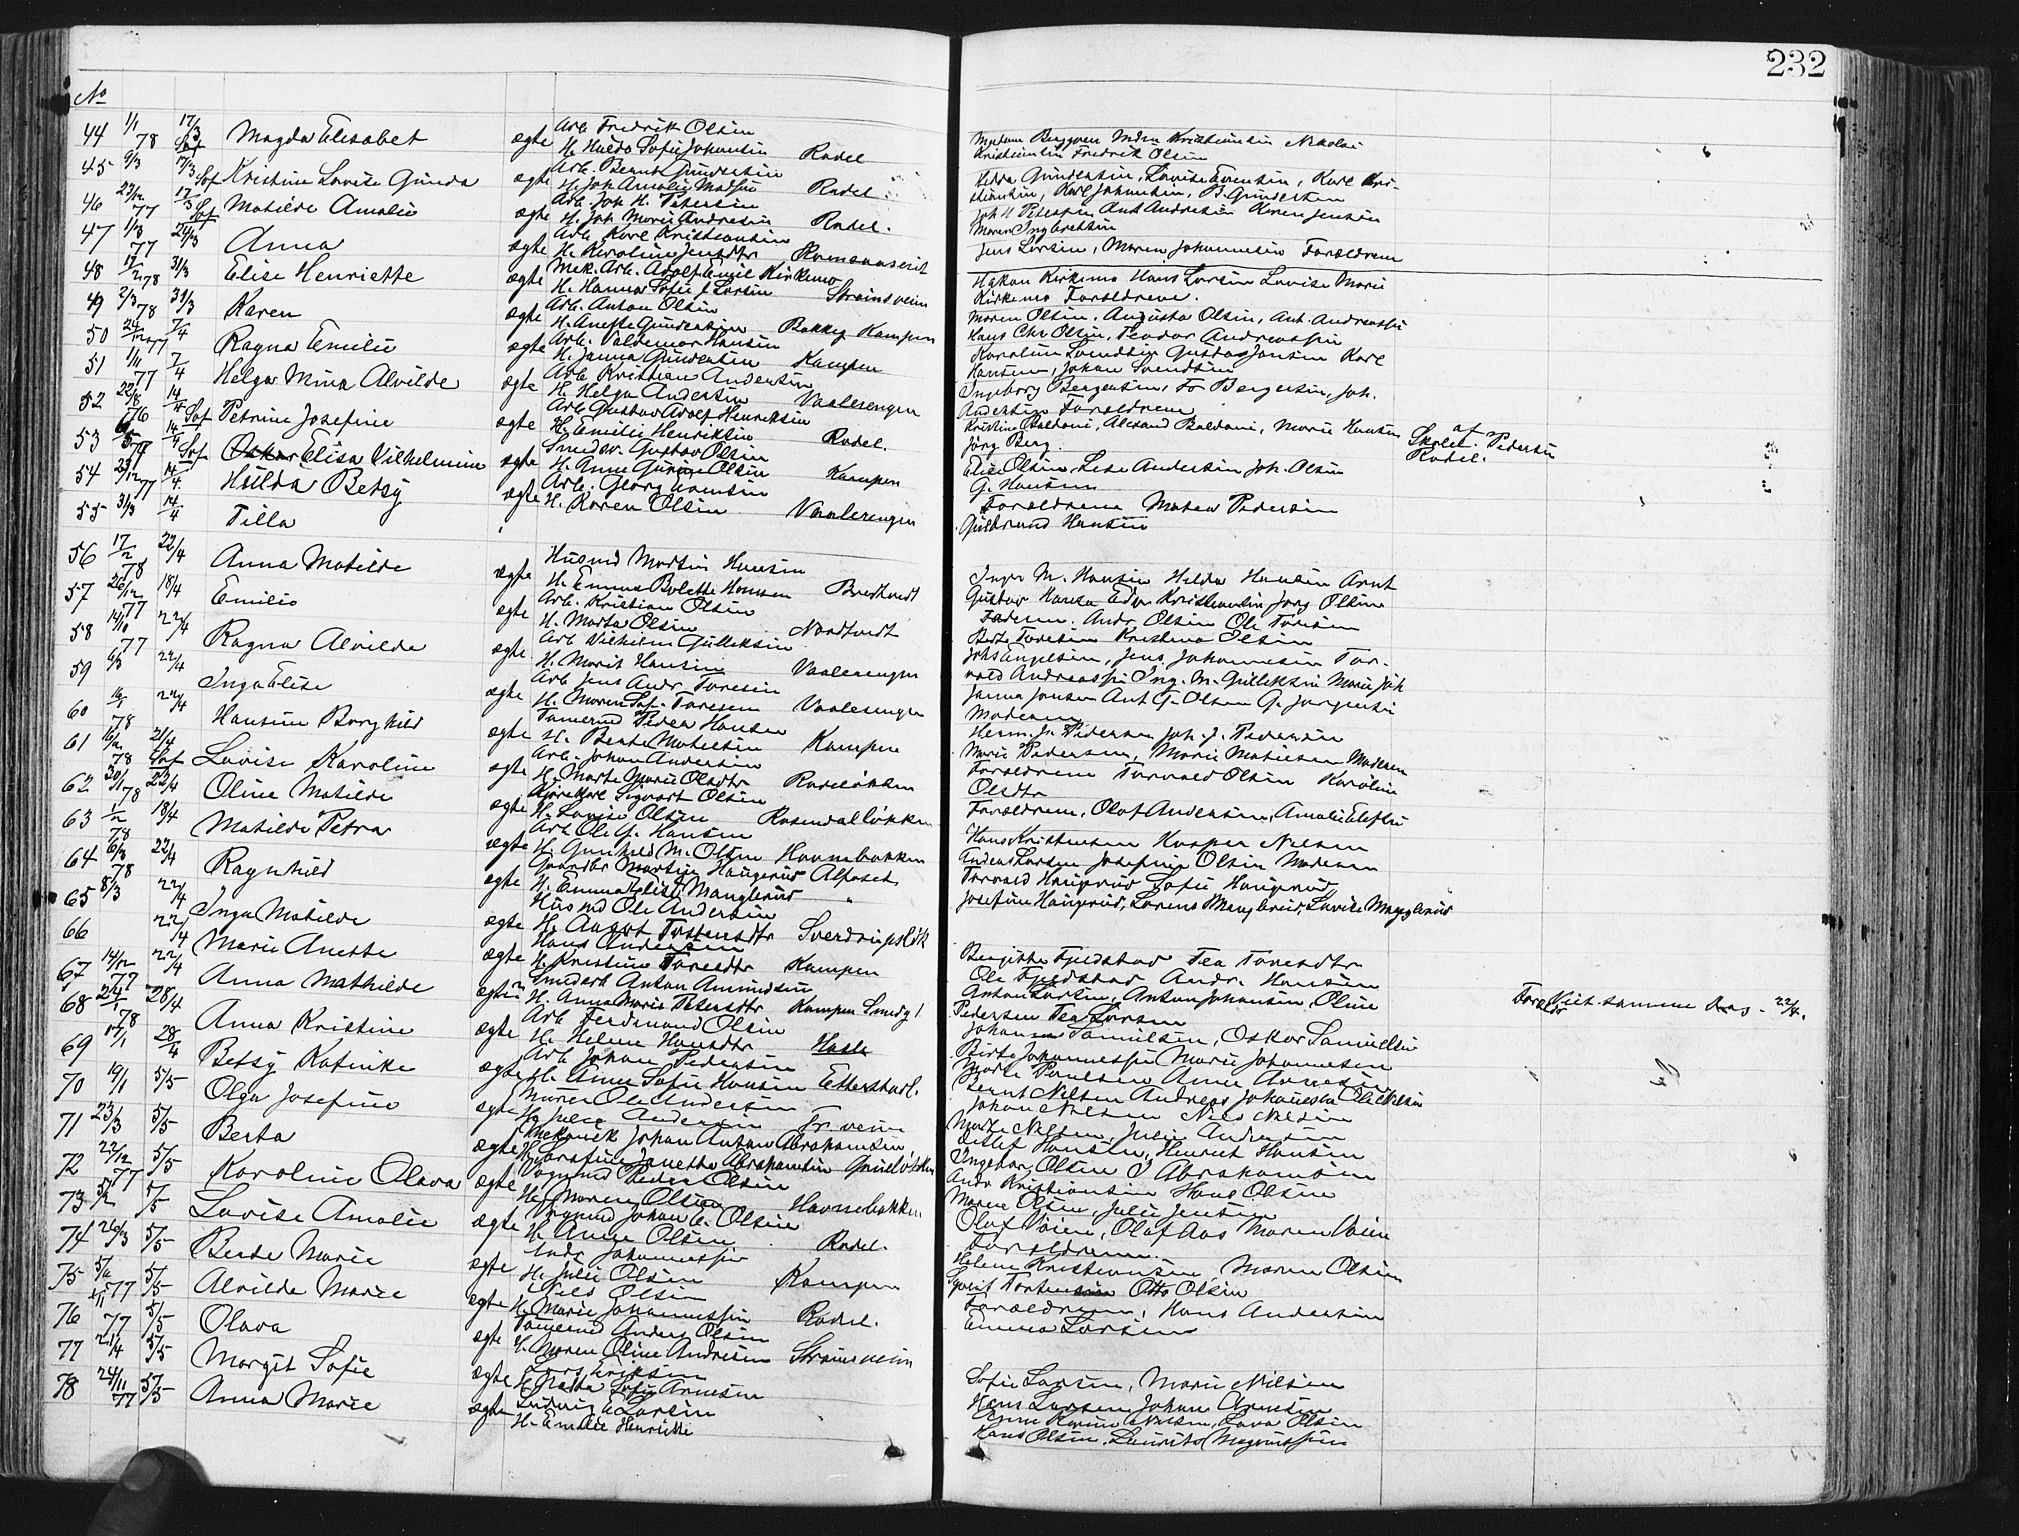 232
No
44 1/1 78 17/3 Sof Magda Elisabet ægte Arb. Fredrik Olsen
H. Hulda Sofie Johansen Rodel
Kristiansen Nikolai
Kristiansen Fredrik Olsen
45 9/3 17/3 Sof Kristine Lovise Gunda ægte Arb. Bernt Gundersen
H. Joh. Amalie Madsen Rodel.
Gundersen, Lovise Evensen, Karl Kri-
stiansen, Karl Johansen, B. Gundersen
46 23/12 77 17/3 Sof Matilde Amalie ægte Arb. Joh. H. Petersen
H. Joh. Marie Andresen Rodel.
Joh. H. Petersen Ant. Andresen Karen Jensen
Maren Ingbretsen
47 77 Anna ægte Arb. Karl Kristiansen
H. Karoline Jensdtr
Jens Larsen, Maren Johannesen Forældrene
48 17/2 78 31/3 Elise Henriette ægte Mek. Arb. Adolf Emil Kirkemo
H. Hanna Sofie f. Larsen Strømsveien
Håkon Kirkemo Hans Larsen Lovise Marie
Kirkemo Forældrene.
49 2/3 78 31/3 Karen ægte Arb. Anton Olsen
H. Anette Gundersen Bakkeg Kampen
Maren Olsen, Augusta Olsen, Ant. Andreassen
Hans Chr. Olsen, Teodor Andreassen
50 24/12 77 7/4 Ragna Emilie ægte Arb. Valdemar Hansen
H. Janna Gundersen Kampen
Karoline Svendsen Gustav Jonsen Karl
Hansen, Johan Svendsen
51 1/11 77 7/4 Helga Mina Alvilde ægte Arb. Kristian Andersen
H. Helga Andersen Vaalerengen
Ingeborg Bergersen, Fr. Bergersen, Joh.
Andersen Forældrene
52 22/8 76 14/4 Sof Petrine Josefine ægte Arb. Gustav Adolf Henriksen
H. Emilie Henriksen Rodel.
Kristine Baldani, Alexand Baldani, Marie Hansen
Jörg. Berg
af Skolel. Pedersen
Rodel.
53 14/4 Sof Elisa Vilhelmine ægte Smedsv. Gustav Olsen
H. Anne Gurine Olsen Kampen
Elise Olsen, Lise Andersen Joh. Olsen
G. Hansen
54 23/12 77 14/4 Hulda Betsy ægte Arb. Georg Evensen
H. Karen Olsen Vaalerengen
Forældrene Matea Pedersen
Gulbrand Hansen
55 31/3 14/4 Tilla
56 17/2 78 22/4 Anna Matilde ægte Husmd Martin Hansen
H. Emma Bolette Hansen Bredtvedt
Inger M. Hansen Hilda Hansen Arnt
57 26/12 77 18/4 Emilie ægte Arb. Kristian Olsen
H. Marta Olsen Nordtvedt
Faderen, Andr. Olsen Ole Toresen
Berte Toresen Kristine Olsen
58 14/10 77 22/4 Ragna Alvilde ægte Arb. Vilhelm Gulliksen
H. Marit Hansen Vaalerengen
Johs Engelsen, Jens Johannesen Tor-
vald Andreassen Ing. M. Gulliksen Marie Joh
59 6/3 22/4 Inga Elise ægte Arb. Jens Andr. Toresen
H. Maren Sof. Toresen Vaalerengen
Janna Jonsen Ant. G. Olsen G. Jørgensen
Moderen
60 16/1 78 22/4 Hansine Borghild ægte Tømmermd Peder Hansen
H. Berte Matiesen Kampen
Herm. Jr. Pedersen Joh. J. Pedersen
Marie Pedersen, Marie Matiesen Moderen
61 16/2 78 21/4 Sof Lovise Karoline ægte Arb. Johan Andersen
H. Marte Marie Olsdtr Rodeløkken
Forældrene Torvald Olsen Karoline
Olsdtr
62 30/1 78 22/4 Oline Matilde ægte Kjørekarl Sigvart Olsen
H. Lovise Olsen Rosendalløkken
Forældrene, Olaf Andersen, Amalie Elefsen
63 1/2 78 19/4 Matilde Petra ægte Arb. Ole G. Hansen
H. Gunhild M. Olsen Havnebakken
Hans Kristensen Kasper Nielsen
Anders Larsen Josefine Olsen Moderen
64 6/3 78 22/4 Ragnhild ægte Gaardbr Martin Haugerud Alfaset
H. Emma Elise Manglerud "
Torvald Haugerud Sofie Haugerud
Josefine Haugerud, Lorens Manglerud, Lovise Manglerud
65 8/3 22/4 Inga Matilde ægte Husmd Ole Andersen
H. August Torstensdtr Sverdrupsløk
66 22/4 Marie Anette ægte Hans Andersen
H. Kristine Toresdtr Kampen
Bergitte Fjeldstad Tea Toresdtr
Ole Fjeldstad Andr. Hansen
67 14/12 77 22/4 Anna Mathilde ægte Smedark Anton Amundsen
H. Anna Marie Petersdtr Kampen Smedg 1
Anton Larsen, Anton Johansen, Oline
Pedersen Tea Larsen
Foreldr Viet samme Dag 22/4.
68 24/1 78 28/4 Anna Kristine ægte Arb Ferdinand Olsen
H. Helene Hansdtr Hasle
Johanne Samuelsen, Oskar Samuelsen
Berte Johannessen Marie Johannesen
69 28/4 Betsy Katinka ægte Arb Johan Pedersen
H. Anne Sofie Hansen Etterstad.
Marte Paulsen Anne Arnesen
Bernt Nilsen Andreas Johannesen Ole Nilsen
70 19/1 5/5 Olga Josefine ægte Murer Ole Andersen
H. Julie Andersen Tr. veien
Johan Nilsen Nils Nilsen
Marte Nilsen, Julie Andersen
71 23/3 5/5 Berta ægte Mekanik Johan Anton Abrahamsen
H. Serafine Janette Abrahamsen Grünerløkken
Detlef Hansen, Henriet Hansen
Ingebor. Olsen J Abrahamsen
72 22/12 77 5/5 Karoline Olava ægte Vognmd Peder Olsen
H. Maren Olsen Havnebakken
Andr. Kristiansen Hans Olsen
Maren Olsen, Julie Jensen
73 5/2 5/5 Lovise Amalie ægte Vognmd Johan E. Olsen
H. Anne Olsen Rodel.
Olaf Veien, Olaf Aas Maren Veien
Forældrene.
74 26/3 5/5 Berte Marie ægte Ludv Johannessen
H. Julie Olsen Kampen
Helene Kristiansen, Maren Olsen
Syvert Torstensen Otto Olsen
75 77 5/5 Alvilde Marie ægte Nils Olsen
H. Marie Johannessen Rodel.
Forældrene, Hans Andersen
Emma Larsen
76 77 5/5 Olava ægte Tømmermd Anders Olsen
H. Maren Oline Andresen Strømsveien
77 21/4 5/5 Margit Sofie ægte Lars Eriksen
H. Netta Sofie Arnesen
Sofie Larsen, Marie Nilsen
Hans Larsen Johan Arnesen
78 24/11 77 5/5 Anna Marie ægte Ludvig E Larsen
H. Emilie Henriette
Anne Karine Nilsen, Lova Olsen
Hans Olsen, Laurits Magnussen